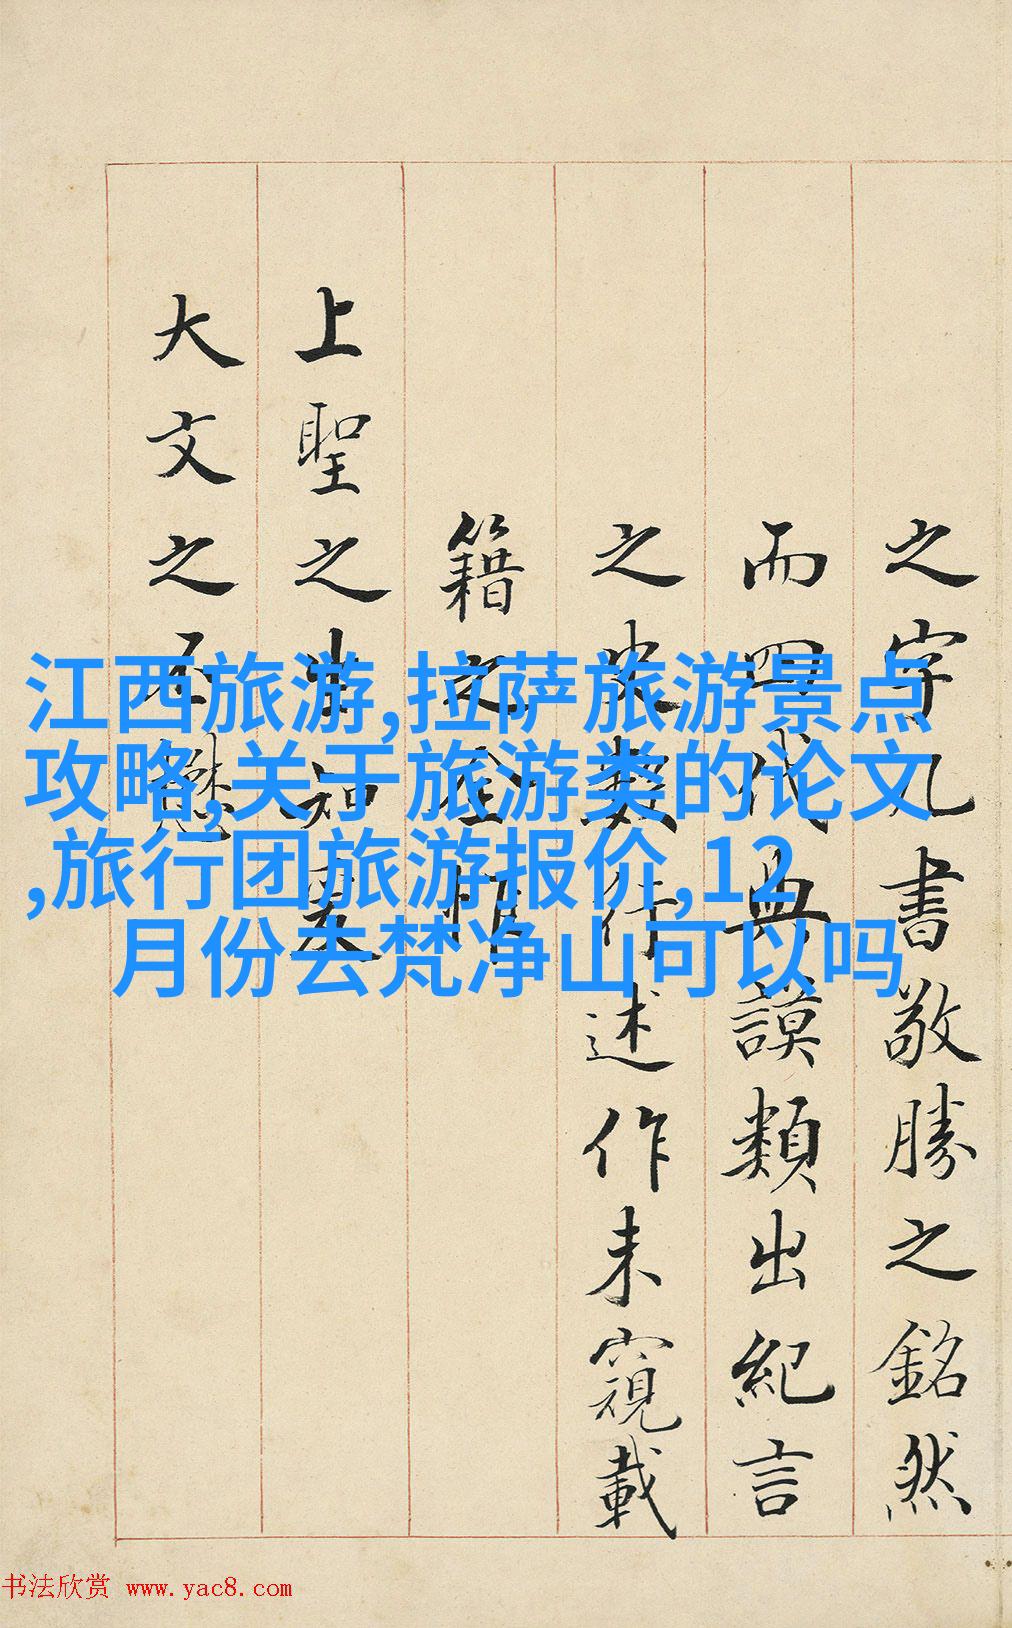 之字九書敬勝之銘然
而四代典謨類出紀言
之史數行述作未窺載
籍之全惟
上聖之生知
大文之
江西旅游,拉萨旅游景点
攻略,关于旅游类的论文
,旅行团旅游报价,12
月份去梵净山可以吗
书法欣赏 www.yac8.com